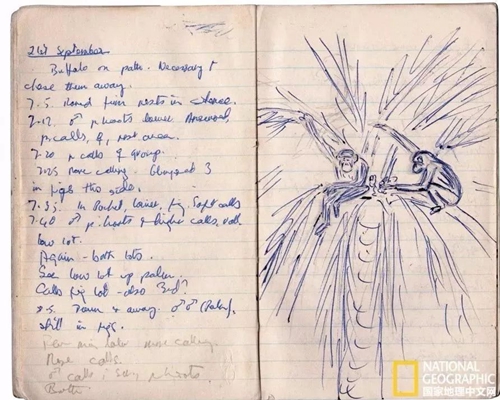 21st September
Buffalo on path. Necessary to
chase them away.
7-5. Heard from nests in
7-12. ♂ p hoots lower. Answered,
p calls, ♀, nest area.
7-20 p calls ♀ group.
7-25 More calling. Glimpsed 3
in figs this side.
7-35. In Pocket, lower, fig. Soft calls
7-40 ♂ p. hoots & higher calls, both
low lot.
Again - both lots.
See low lot up palm.
Calls fig lot - also 3rd?
Down & away. ♂♂
still in figs.
Few min later more calling.
More calls.
♂ calls p hoots.
NATIONAL
GEOGRAPHIC
国家地理中文网